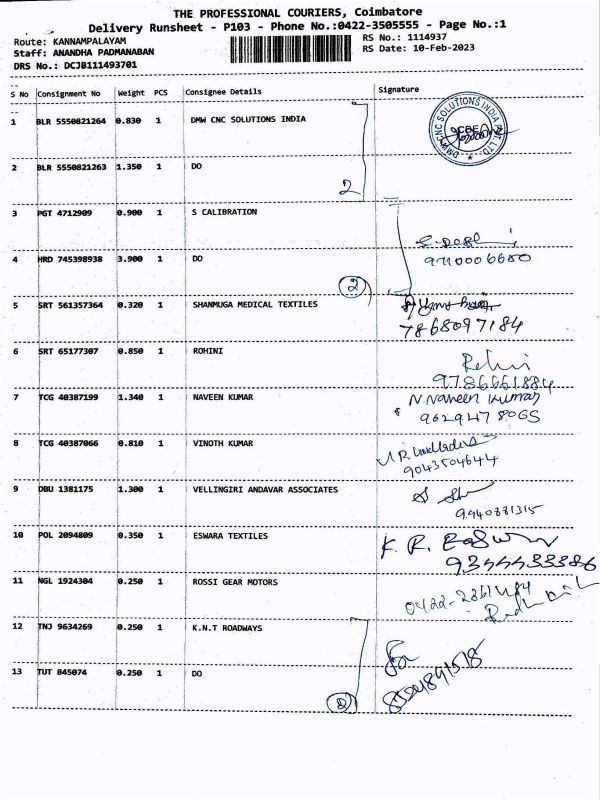 THE PROFESSIONAL COURIERS, Coimbatore
Delivery Runsheet - P103 - Phone No.:0422-3505555 - Page No.:1
Route: KANNAMPALAYAM
RS No.: 1114937
Staff: ANANDHA PADMANABAN
RS Date: 10-Feb-2023
DRS No.: DCJB111493701
S No Consignment No Weight PCS Consignee Details Signature
1 BLR 5550821264 0.830 1 DMW CNC SOLUTIONS INDIA
DMW CNC SOLUTIONS INDIA PVT. LTD.
CBE
2 BLR 5550821263 1.350 1 DO
2
3 PGT 4712909 0.900 1 S CALIBRATION
4 HRD 745398938 3.900 1 DO
9710006680
2
5 SRT 561357364 0.320 1 SHANMUGA MEDICAL TEXTILES
7868097184
6 SRT 65177307 0.850 1 ROHINI
9786661884
7 TCG 40387199 1.340 1 NAVEEN KUMAR
N. Naveen Kumar
9629478065
8 TCG 40387066 0.810 1 VINOTH KUMAR
9043504644
9 DBU 1381175 1.300 1 VELLINGIRI ANDAVAR ASSOCIATES
9940881315
10 POL 2094809 0.350 1 ESWARA TEXTILES
K. R.
9344433386
11 NGL 1924304 0.250 1 ROSSI GEAR MOTORS
12 TNJ 9634269 0.250 1 K.N.T ROADWAYS
13 TUT 845074 0.250 1 DO